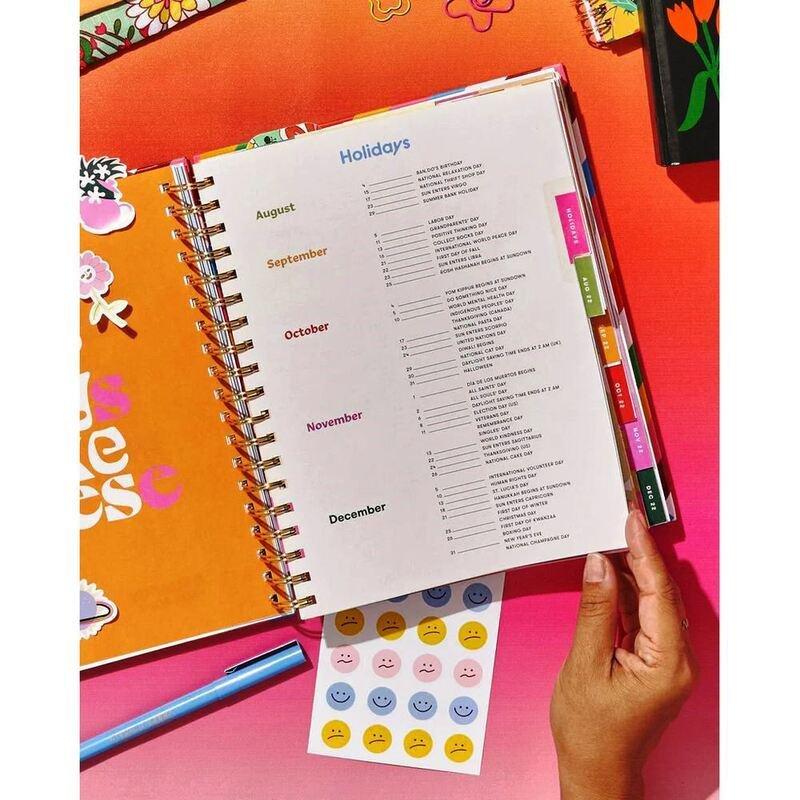 Holidays
August
4 BAN.DO'S BIRTHDAY
15 NATIONAL RELAXATION DAY
17 NATIONAL THRIFT SHOP DAY
23 SUN ENTERS VIRGO
29 SUMMER BANK HOLIDAY
September
5 LABOR DAY
11 GRANDPARENTS' DAY
13 POSITIVE THINKING DAY
16 COLLECT ROCKS DAY
21 INTERNATIONAL WORLD PEACE DAY
22 FIRST DAY OF FALL
SUN ENTERS LIBRA
25 ROSH HASHANAH BEGINS AT SUNDOWN
October
4 YOM KIPPUR BEGINS AT SUNDOWN
5 DO SOMETHING NICE DAY
10 WORLD MENTAL HEALTH DAY
INDIGENOUS PEOPLES' DAY
THANKSGIVING (CANADA)
17 NATIONAL PASTA DAY
23 SUN ENTERS SCORPIO
24 UNITED NATIONS DAY
DIWALI BEGINS
29 NATIONAL CAT DAY
DAYLIGHT SAVING TIME ENDS AT 2 AM (UK)
31 HALLOWEEN
November
1 DÍA DE LOS MUERTOS BEGINS
ALL SAINTS' DAY
2 ALL SOULS' DAY
6 DAYLIGHT SAVING TIME ENDS AT 2 AM
8 ELECTION DAY (US)
11 VETERANS DAY
REMEMBRANCE DAY
SINGLES' DAY
13 WORLD KINDNESS DAY
SUN ENTERS SAGITTARIUS
THANKSGIVING (US)
26 NATIONAL CAKE DAY
December
5 INTERNATIONAL VOLUNTEER DAY
10 HUMAN RIGHTS DAY
13 ST. LUCIA'S DAY
HANUKKAH BEGINS AT SUNDOWN
SUN ENTERS CAPRICORN
FIRST DAY OF WINTER
25 CHRISTMAS DAY
FIRST DAY OF KWANZAA
BOXING DAY
31 NEW YEAR'S EVE
NATIONAL CHAMPAGNE DAY
HOLIDAYS
AUG 22
SEP 22
OCT 22
NOV 22
DEC 22